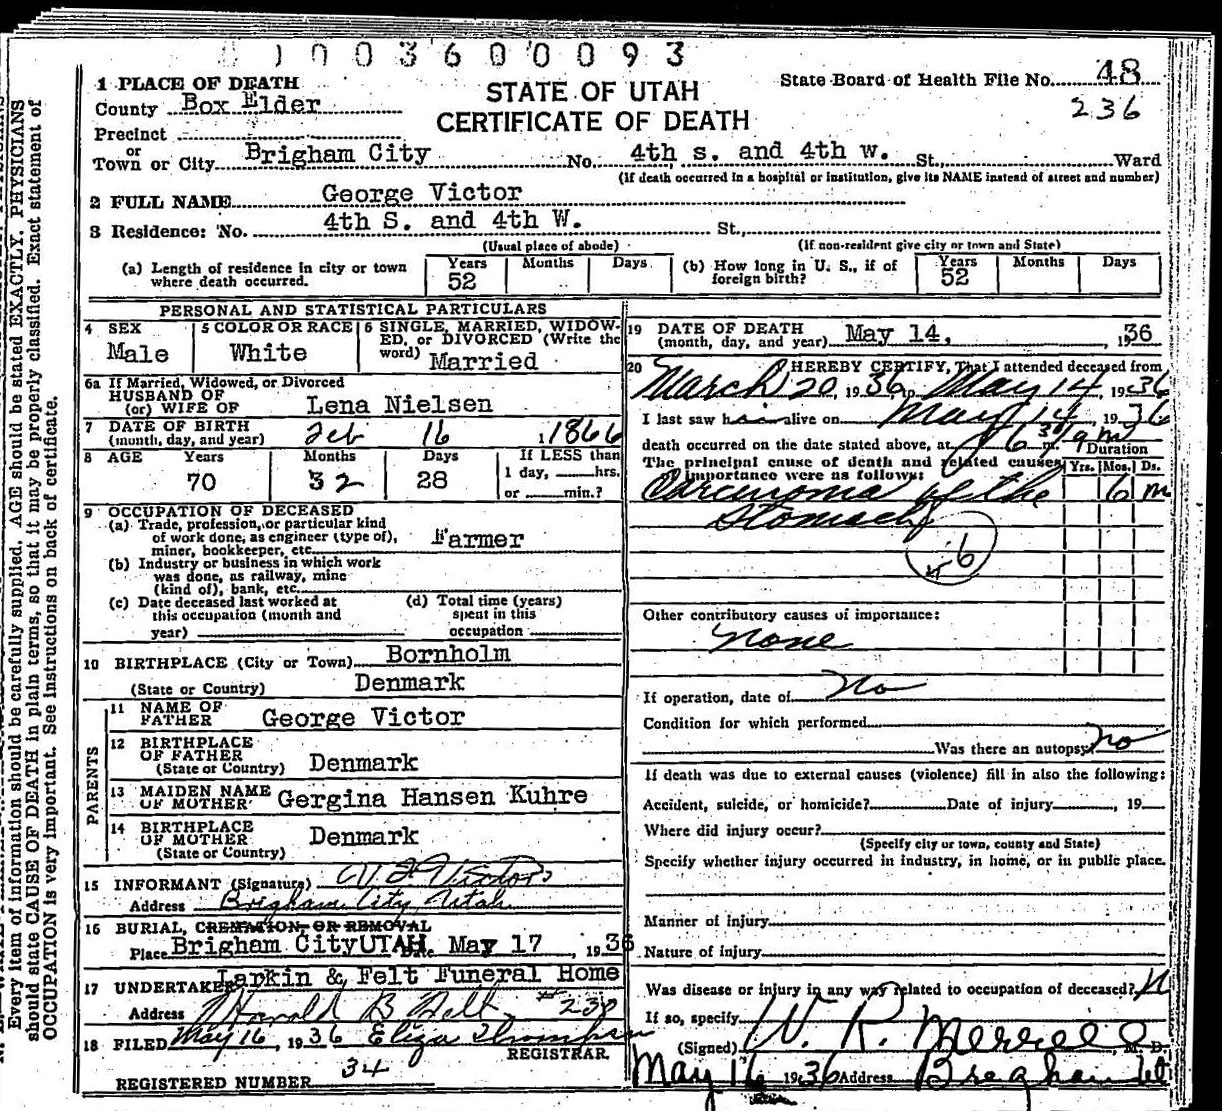 1003600093
1 PLACE OF DEATH
County Box Elder
Precinct
or
Town or City Brigham City No. 4th s. and 4th w. St., Ward
STATE OF UTAH
CERTIFICATE OF DEATH
State Board of Health File No. 48
236
(If death occurred in a hospital or institution, give its NAME instead of street and number)
2 FULL NAME George Victor
3 Residence: No. 4th S. and 4th W. St.,
(Usual place of abode) (If non-resident give city or town and State)
(a) Length of residence in city or town where death occurred. Years 52 Months Days
(b) How long in U. S., if of foreign birth? Years 52 Months Days
PERSONAL AND STATISTICAL PARTICULARS
4 SEX Male
5 COLOR OR RACE White
6 SINGLE, MARRIED, WIDOW-
ED, or DIVORCED (Write the
word) Married
6a If Married, Widowed, or Divorced
HUSBAND OF
(or) WIFE OF Lena Nielsen
7 DATE OF BIRTH
(month, day, and year) Feb 16 1866
8 AGE Years Months Days If LESS than
70 32 28 1 day, hrs.
or min.?
9 OCCUPATION OF DECEASED
(a) Trade, profession, or particular kind
of work done, as engineer (type of),
miner, bookkeeper, etc. Farmer
(b) Industry or business in which work
was done, as railway, mine
(kind of), bank, etc.
(c) Date deceased last worked at
this occupation (month and
year)
(d) Total time (years)
spent in this
occupation
10 BIRTHPLACE (City or Town) Bornholm
(State or Country) Denmark
PARENTS
11 NAME OF
FATHER George Victor
12 BIRTHPLACE
OF FATHER
(State or Country) Denmark
13 MAIDEN NAME
OF MOTHER Gergina Hansen Kuhre
14 BIRTHPLACE
OF MOTHER
(State or Country) Denmark
15 INFORMANT (Signature) Victor
Address Brigham City, Utah
16 BURIAL, CREMATION OR REMOVAL
Place Brigham City UTAH Date May 17, 1936
17 UNDERTAKER Larkin & Felt Funeral Home
Address Harold B Felt #230
18 FILED May 16, 1936 Eliza Thompson
REGISTRAR.
REGISTERED NUMBER 34
19 DATE OF DEATH
(month, day, and year) May 14, 1936
20 I HEREBY CERTIFY, That I attended deceased from
March 20, 1936, to May 14, 1936
I last saw him alive on May 14 1936
death occurred on the date stated above, at 6 30 a m.
The principal cause of death and related causes
importance were as follows:
Duration
Yrs. Mos. Ds.
Carcinoma of the 6 m
Stomach
46
Other contributory causes of importance:
None
If operation, date of No
Condition for which performed
Was there an autopsy no
If death was due to external causes (violence) fill in also the following:
Accident, suicide, or homicide? Date of injury , 19
Where did injury occur?
(Specify city or town, county and State)
Specify whether injury occurred in industry, in home, or in public place.
Manner of injury
Nature of injury
Was disease or injury in any way related to occupation of deceased? N
If so, specify
(Signed) W. R. Merrell, M. D.
May 16 1936 Address Brigham
Every item of information should be carefully supplied. AGE should be stated EXACTLY. PHYSICIANS
should state CAUSE OF DEATH in plain terms, so that it may be properly classified. Exact statement of
OCCUPATION is very important. See instructions on back of certificate.